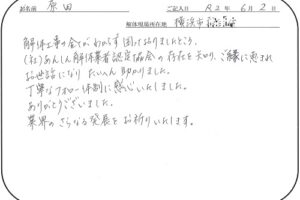 お名前 原田 ご記入日 R2年6月2日
解体現場所在地 横浜市
解体工事の全てがわからず困っておりましたところ、
(社)あんしん解体業者認定協会の存在を知り、ご縁に恵まれ
お世話になり たいへん助かりました。
丁寧なフォロー体制に感じいたしました。
ありがとうございました。
業界のさらなる発展をお祈りいたします。